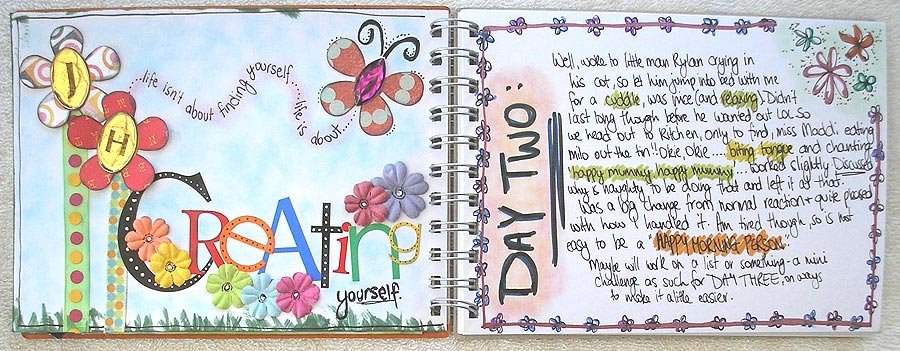 J
H
...life isn't about finding yourself.....life is about....
CReAting
yourself.
DAY TWO:
Well, woke to little man Rylan crying in
his cot, so let him jump into bed with me
for a cuddle, was nice (and relaxing). Didn't
last long though before he wanted out LOL. So
we head out to kitchen, only to find, miss Maddi eating
milo out the tin!! Okie, Okie.... biting tongue and chanting
happy mummy, happy mummy.... worked slightly. Discussed
why is naughty to be doing that and left it at that.
Was a big change from normal reaction + quite pleased
with how I handled it. Am tired though, so is not
easy to be a "HAPPY MORNING PERSON".
Maybe will work on a list or something - a mini
challenge as such for "DAY THREE, on ways
to make it a little easier.